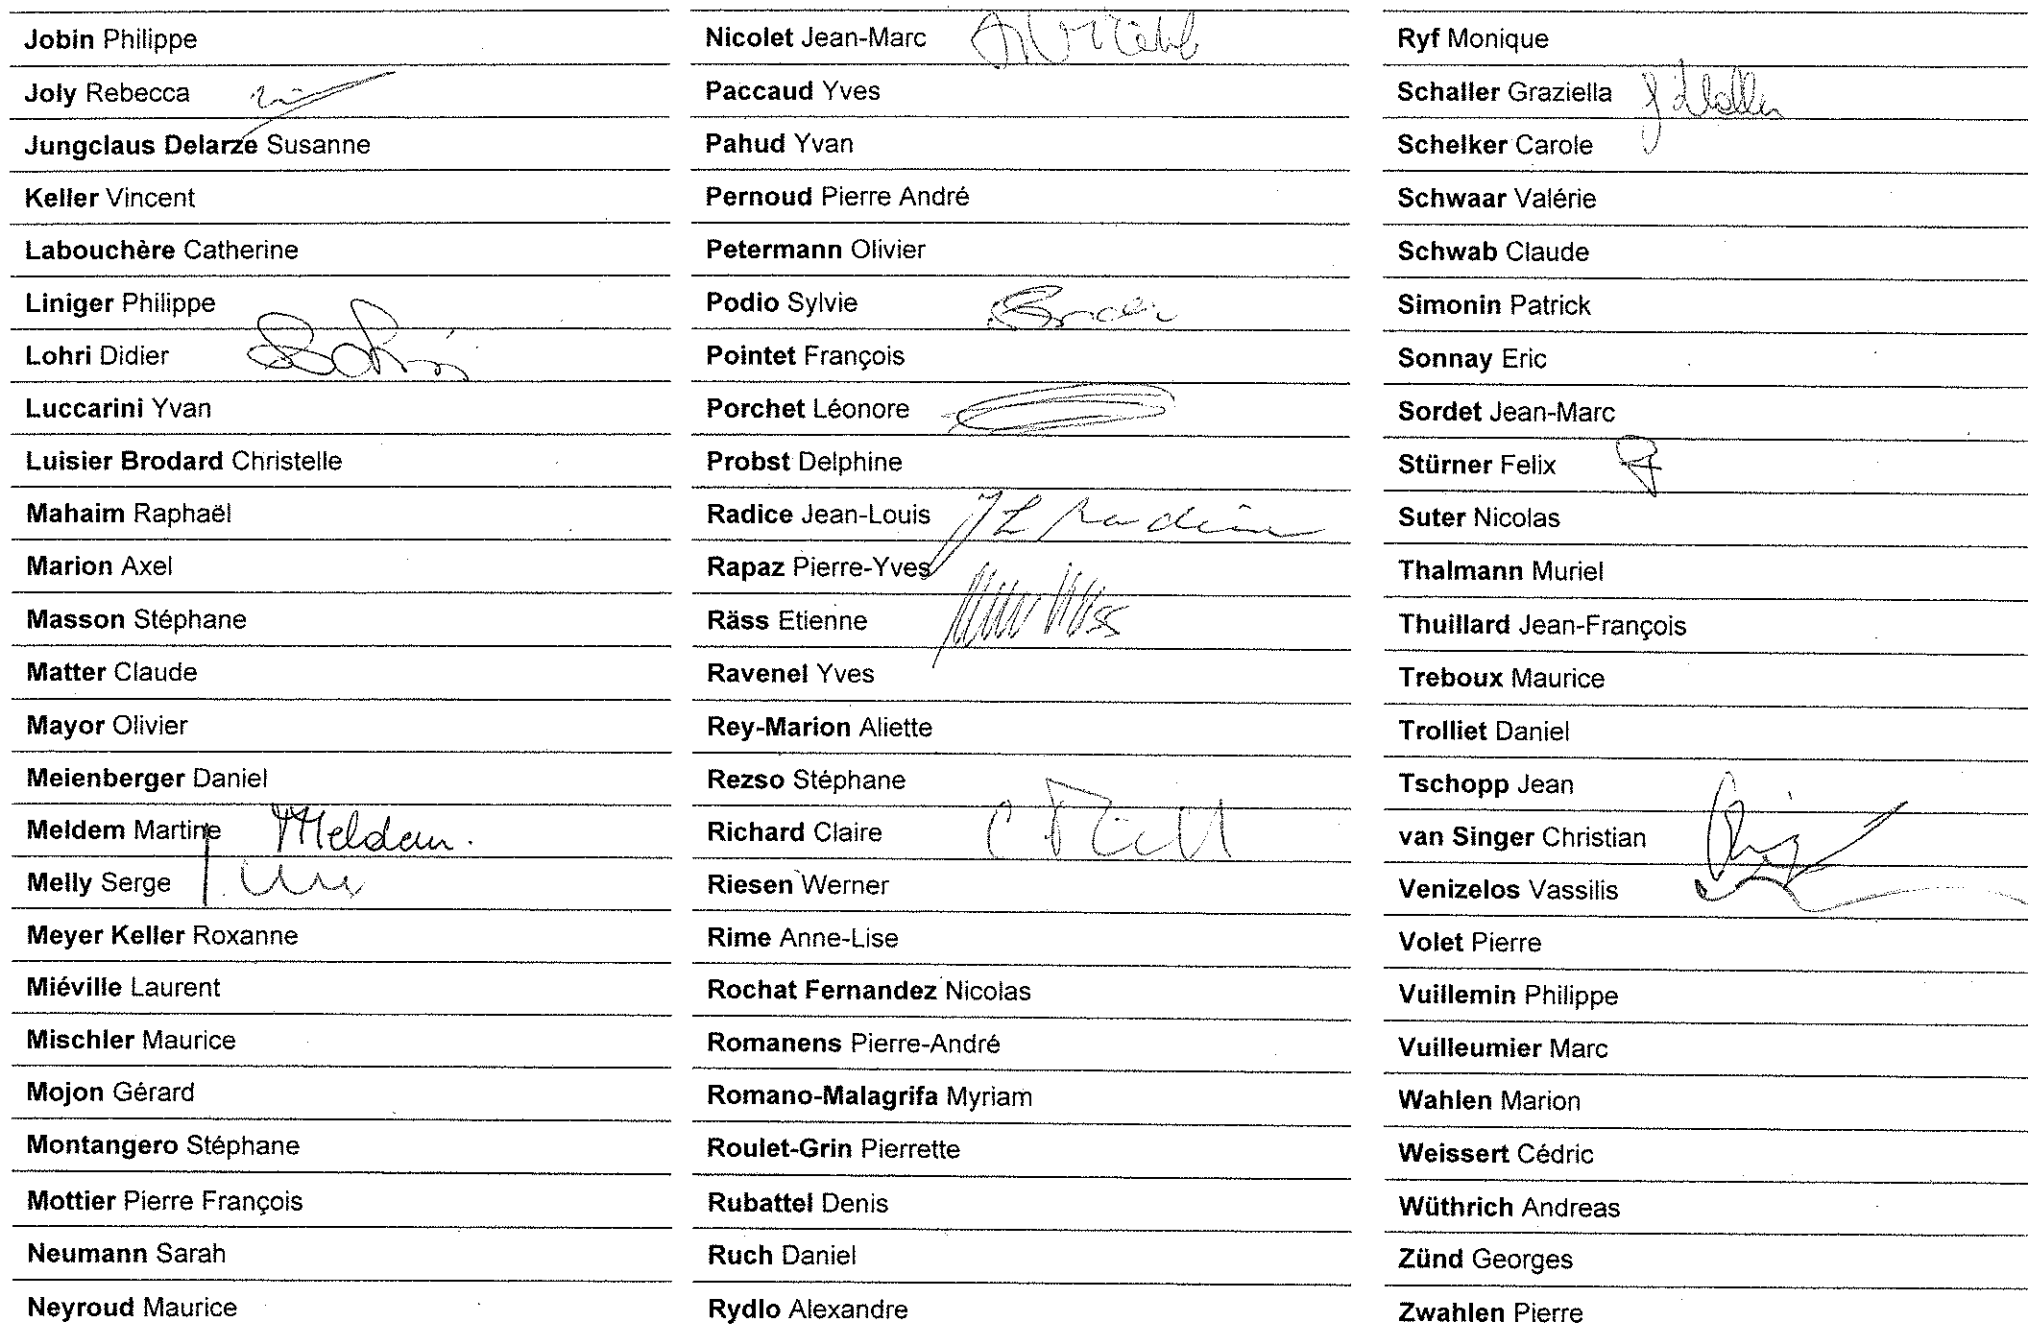 Jobin Philippe
Joly Rebecca
Jungclaus Delarze Susanne
Keller Vincent
Labouchère Catherine
Liniger Philippe
Lohri Didier
Luccarini Yvan
Luisier Brodard Christelle
Mahaim Raphaël
Marion Axel
Masson Stéphane
Matter Claude
Mayor Olivier
Meienberger Daniel
Meldem Martine Meldem.
Melly Serge
Meyer Keller Roxanne
Miéville Laurent
Mischler Maurice
Mojon Gérard
Montangero Stéphane
Mottier Pierre François
Neumann Sarah
Neyroud Maurice
Nicolet Jean-Marc
Paccaud Yves
Pahud Yvan
Pernoud Pierre André
Petermann Olivier
Podio Sylvie
Pointet François
Porchet Léonore
Probst Delphine
Radice Jean-Louis JL Radice
Rapaz Pierre-Yves
Räss Etienne
Ravenel Yves
Rey-Marion Aliette
Rezso Stéphane
Richard Claire
Riesen Werner
Rime Anne-Lise
Rochat Fernandez Nicolas
Romanens Pierre-André
Romano-Malagrifa Myriam
Roulet-Grin Pierrette
Rubattel Denis
Ruch Daniel
Rydlo Alexandre
Ryf Monique
Schaller Graziella
Schelker Carole
Schwaar Valérie
Schwab Claude
Simonin Patrick
Sonnay Eric
Sordet Jean-Marc
Stürner Felix
Suter Nicolas
Thalmann Muriel
Thuillard Jean-François
Treboux Maurice
Trolliet Daniel
Tschopp Jean
van Singer Christian
Venizelos Vassilis
Volet Pierre
Vuillemin Philippe
Vuilleumier Marc
Wahlen Marion
Weissert Cédric
Wüthrich Andreas
Zünd Georges
Zwahlen Pierre